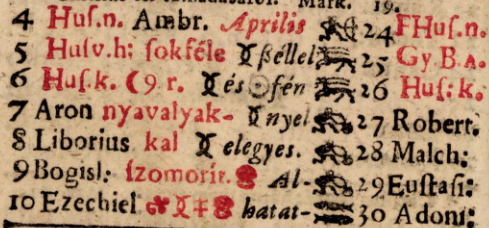 Mark. 19.
4 Huſ.n. Ambr. Aprilis 24 FHuſ.n.
5 Huſv.h: ſokféle ſzéllel 25 Gy B.a.
6 Huſ.k. ☾9 r. és ☉ fén 26 Huſ: k.
7 Aron nyavalyak- nyel 27 Robert.
8 Liborius kal elegyes. 28 Malch:
9 Bogisl: ſzomorít. Al- 29 Euſtaſi:
10 Ezechiel hatat- 30 Adoni: